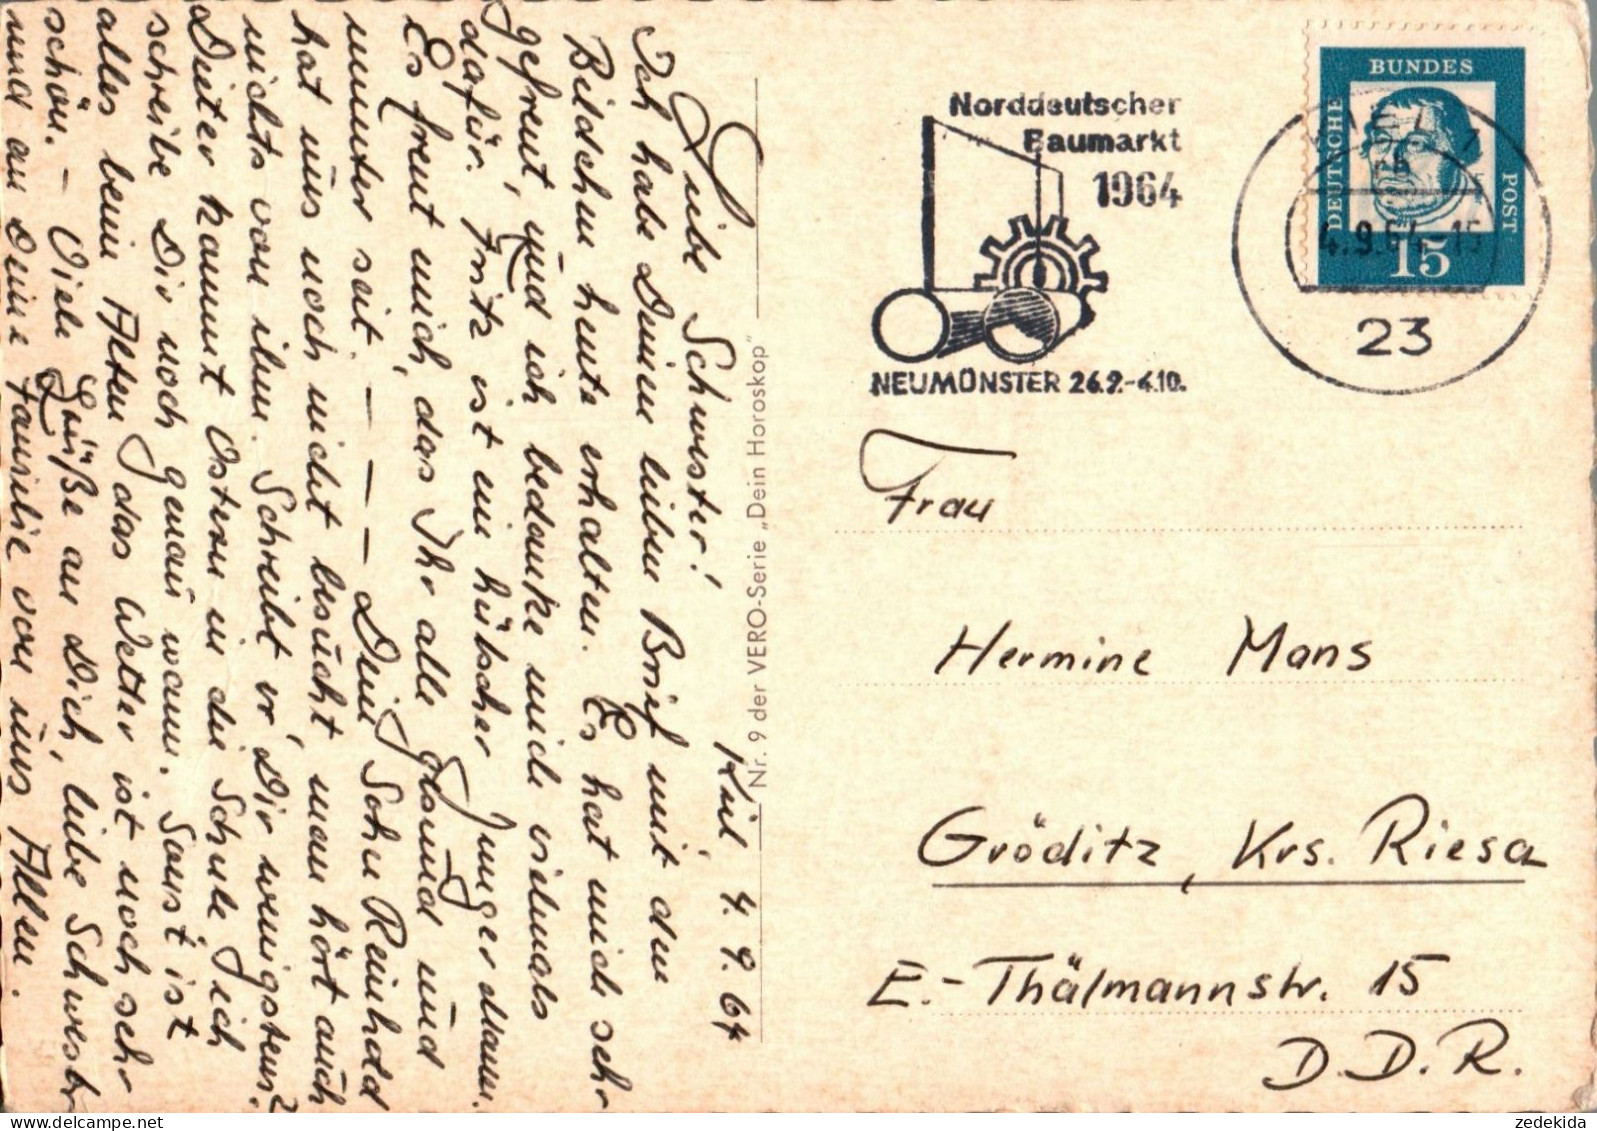 Kiel, 4.9.64
Liebe Schwester!
Ich habe Deinen lieben Brief mit den
Bildchen heute erhalten. Es hat mich sehr
gefreut, und ich bedanke mich vielmals
dafür. Fritz ist ein hübscher Junger Mann.
Es freut mich, das Ihr alle gesund und
munter seit. — — — Dein Sohn Reinhold
hat uns noch nicht besucht, man hört auch
nichts von ihm. Schreibt er Dir wenigstens?
Dieter kommt Ostern in die Schule. Ich
schreibe Dir noch genau wann. Sonst ist
alles beim Alten, das Wetter ist noch sehr
schön. – Viele Grüße an Dich, liebe Schwester
und an Deine Familie von uns Allen.
Nr. 9 der VERO-Serie „Dein Horoskop"
Norddeutscher
Baumarkt
1964
NEUMÜNSTER 26.9.-4.10.
KIEL 1
4.9.64-15
23
DEUTSCHE
BUNDES
POST
15
Frau
Hermine Mans
Gröditz, Krs. Riesa
E.-Thälmannstr. 15
D.D.R.
zedekida